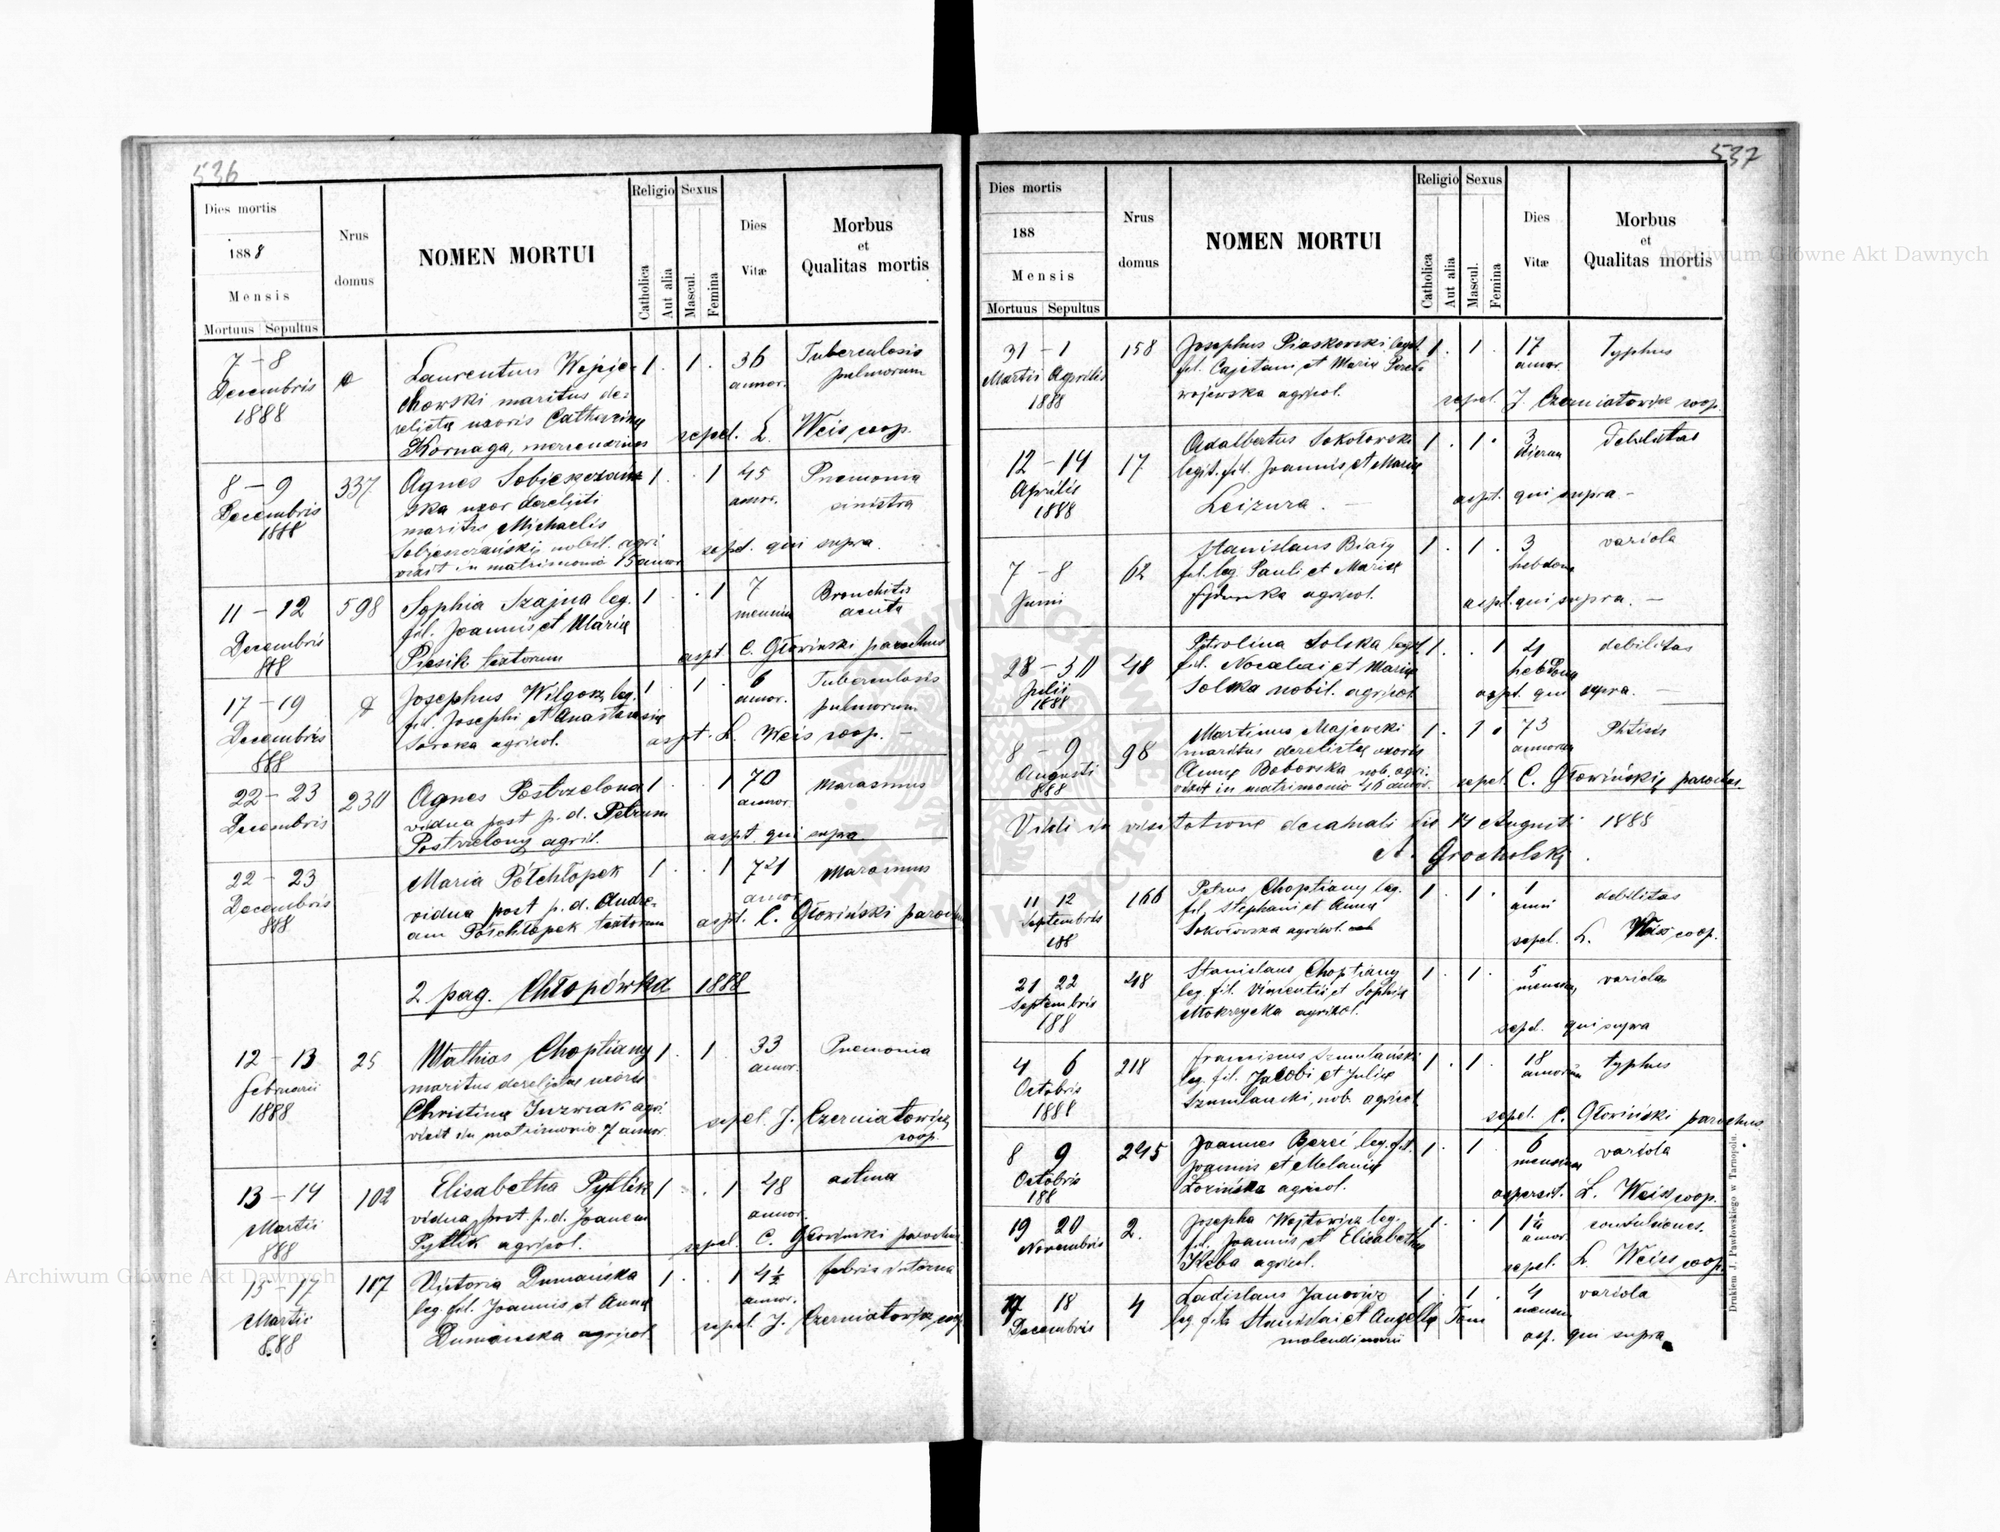 536
Dies mortis
1888
Mensis
Mortuus Sepultus
Nrus
domus
NOMEN MORTUI
Religio
Catholica
Aut alia
Sexus
Mascul.
Femina
Dies
Vitæ
Morbus
et
Qualitas mortis
7 - 8
Decembris
1888
Laurentius Wojcie-
chowski maritus de-
relictæ uxoris Catharinæ
Kornaga, mercenarius
1 . 1 .
36
annor.
Tuberculosis
pulmorum
sepel. L. Weis coop.
8 - 9
Decembris
1888
337
Agnes
ska uxor derelicti
mariti Michaelis
nobil. agri.
vixit in matrimonio 15 annor
1 . . 1
45
annor.
Pnemonia
sinistra
sepel. qui supra.
11 - 12
Decembris
888
598
Sophia Szajna leg.
fil. Joannis et Mariæ
Piesik textorum
1 . . 1
7
mensium
Bronchitis
acuta
aspt C. Głowiński parochus
17 - 19
Decembris
888
Josephus Wilgosz leg.
fil. Josephi et Anastasiæ
Soroka agricol.
1 . 1 .
6
annor.
Tuberculosis
pulmorum
aspt. L. Weis coop. -
22 - 23
Decembris
230
Agnes Postrzelona
vidua post p. d. Petrum
Postrzelony agril.
1 . . 1
70
annor.
Marasmus
aspt qui supra
22 - 23
Decembris
888
Maria Półchłopek
vidua post p. d. Andre-
am Półchłopek textorum
1 . . 1
721
annor
Marasmus
aspt. C. Głowiński parochus
2 pag. Chłopówka 1888
12 - 13
Februarii
1888
25
Mathias Choptiany
maritus derelictæ uxoris
Christinæ Juzwiak agri.
vixit in matrimonio 7 annor.
1 . 1 .
33
annor.
Pnemonia
sepel. J. Czerniatowicz
coop.
13 - 14
Martii
888
102
Elisabetha Pytlik
vidua post p. d. Joanem
Pytlik agricol.
1 . . 1
48
annor.
astma
sepel. C. Głowiński parochus
15 - 17
Martii
888
107
Victoria Dumańska
leg. fil. Joannis et Annæ
Dumańska agricol.
1 . . 1
4½
annor.
febris interna
sepel J. Czerniatowicz coop
537
Dies mortis
188
Mensis
Mortuus Sepultus
Nrus
domus
NOMEN MORTUI
Religio
Catholica
Aut alia
Sexus
Mascul.
Femina
Dies
Vitæ
Morbus
et
Qualitas mortis
31 - 1
Martis Aprilis
1888
158
Josephus Piaskowski legit.
fil. Cajetani et Mariæ Pere-
wojewska agricol.
1 . 1 .
17
annor.
typhus
sepel. J. Czerniatowicz coop.
12 - 14
Aprilis
1888
17
Adalbertus Sokołowski
legit. fil. Joannis et Mariæ
Leizura. -
1 . 1 .
3
dierum
debilitas
aspt. qui supra -
7 - 8
Junii
62
Stanislaus Biały
fil. leg. Pauli et Mariæ
agricol.
1 . 1 .
3
hebdom
variola
aspt. qui supra. -
28 - 30
Julii
1888
48
Petrolina Solska legit.
fil. Nicolai et Mariæ
Solska nobil. agricol.
1 . . 1
4
hebdom
debilitas
aspt. qui supra. -
8 - 9
Augusti
888
98
Martinus Majewski
maritus derelictæ uxoris
Annæ Boborska nob. agri.
vixit in matrimonio 46 annor.
1 . 1 .
73
annorum
Phtisis
sepel. C. Głowiński parochus
Vidi in visitatione decanali die 14 Augusti 1888
A. Grocholski.
11 12
Septembris
188
166
Petrus Choptiany leg.
fil. Stephani et Anna
Sokołowska agricol.
1 . 1 .
1
anni
debilitas
sepel. L. Weiss coop.
21 22
Septembris
188
48
Stanislaus Choptiany
leg. fil. Vincentii et Sophiæ
Mokrzycka agricol.
1 . 1 .
5
mensium
variola
sepel. qui supra
4 6
Octobris
1888
218
Franciscus Szumlański
leg. fil. Jacobi et Juliæ
Szumlancki, nob. agricol
1 . 1 .
18
annorum
typhus
sepel. C. Głowiński parochus
8 9
Octobris
188
245
Joannes Berei leg. fil.
Joannis et Melaniæ
Łozińska agricol.
1 . 1
6
mensium
variola
aspersit. L. Weiss coop.
19 20
Novembris
2.
Josepha Wojtowicz leg.
fil. Joannis et Elisabethæ
Keba agricol.
1 . . 1
1½
annor.
convulsiones.
sepel. L. Weiss coop.
17 18
Decembris
4
Ladislaus Janowicz
leg. fils Stanislai et Angellæ Tam
molendinarii
1 . 1 .
4
mensium
variola
asp. qui supra
Drukiem J. Pawłowskiego w Tarnopolu.
Archiwum Główne Akt Dawnych
Archiwum Główne Akt Dawnych
ARCHIWUM GŁÓWNE AKT DAWNYCH